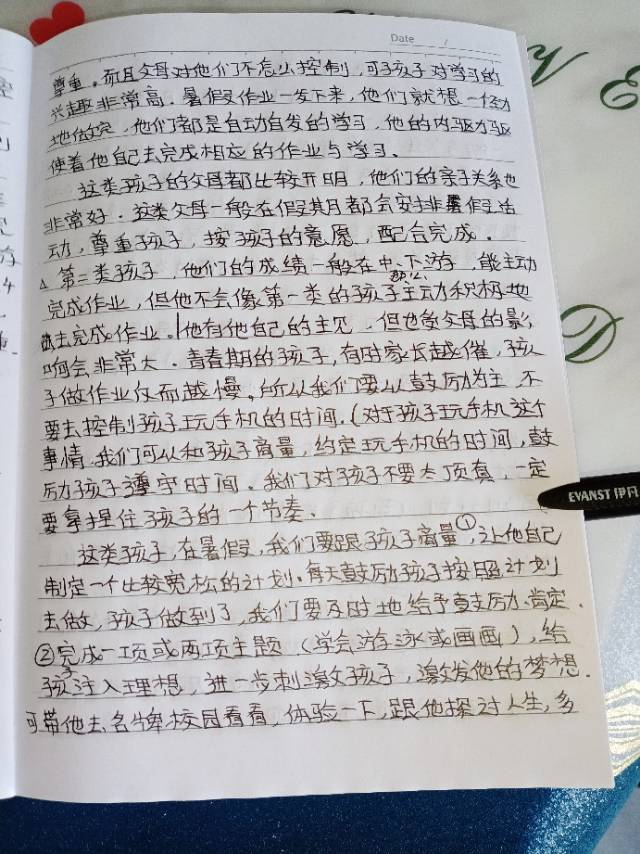 Date
尊重。而且父母对他们不怎么控制,可孩子对学习的
兴趣非常高。暑假作业一发下来,他们就想一个劲
地做完,他们都是自动自发的学习,他的内驱力驱
使着他自己去完成相应的作业与学习、
这类孩子的父母都比较开明,他们的亲子关系也
非常好。这类父母一般在假其月都会安排暑假活
动,尊重孩子,按孩子的意愿,配合完成。
第二类孩子,他们的成绩一般在中、下游,能主动
完成作业,但他不会像第一类的孩子主动积极地
去完成作业。他有他自己的主见,但也受父母的影
响会非常大。青春期的孩子,有时家长越催,孩
子做作业反而越慢。所以我们要以鼓励为主,不
要去控制孩子玩手机的时间.(对于孩子玩手机这个
事情,我们可以和孩子商量,约定玩手机的时间,鼓
励孩子遵守时间。我们对孩子不要太顶真,一定
要拿捏住孩子的一个节奏、
EVANST 伊凡
这类孩子,在暑假,我们要跟孩子商量①,让他自己
制定一个比较宽松的计划.每天鼓励孩子按照计划
去做,孩子做到了,我们要及时地给予鼓励、肯定.
②完成一项或两项主题(学会游泳或画画),给
孩子注入理想,进一步刺激孩子,激发他的梦想.
可带他去名牌校园看看,体验一下,跟他探讨人生,多